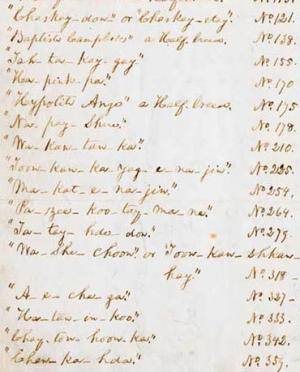 "Chaskay-don" or "Chaskay-etay." No. 121.
"Baptiste Campbell" a Halfbreed. No. 138.
"Tah-ta-kay-gay." No. 155.
"Ha-pink-pa." No. 170
"Hypolite Ange" a Half-breed. No. 175
"Na-pay-Shue." No. 178.
"Wa-kan-tan-ka." No. 210.
"Toon-kan-ka-yag-e-na-jin." No. 225.
"Ma-kat-e-na-jin." No. 254.
"Pa-zee-koo-tay-ma-ne." No. 264.
"Ta-tay-hde-don." No. 279.
"Wa-She-choon," or "Toon-kan-shkan-
hay." No. 318-
"A-e-cha-ga." No. 327-
"Ha-tan-in-koo." No. 333.
"Chay-ton-hoon-ka." No. 342.
"Chan-ka-hda." No. 359.